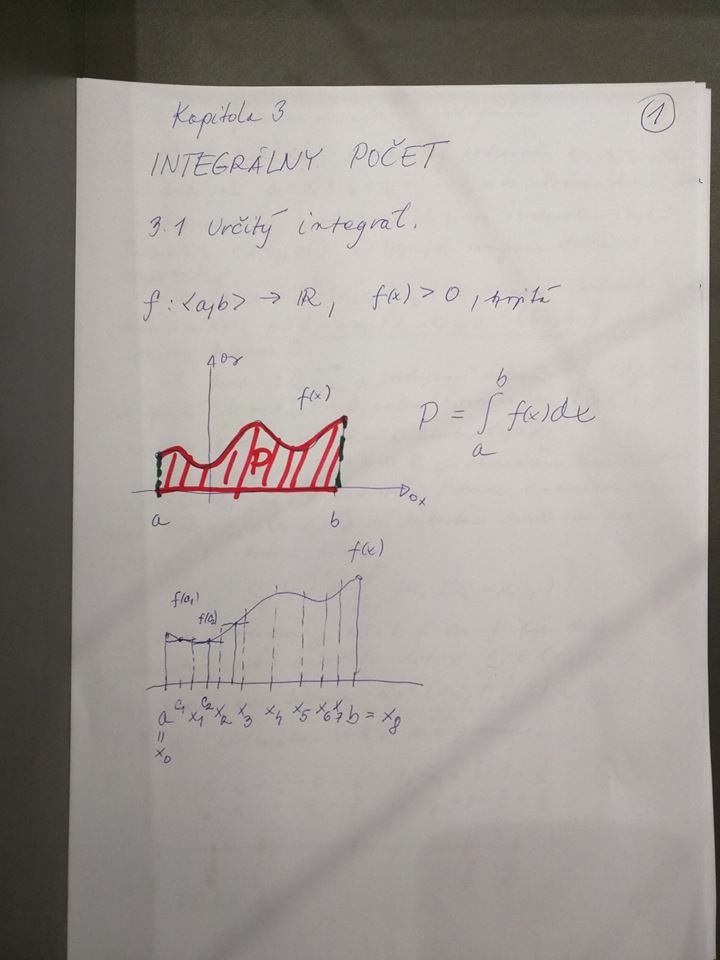 Kapitola 3
1
INTEGRÁLNY POČET
3.1 Určitý integrál.
f: <a,b> → ℝ, f(x) > 0, spojitá
f(x)
P
a b
P = ∫ₐᵇ f(x)dx
f(x)
f(c₁)
f(c₂)
a c₁ x₁ c₂ x₂ x₃ x₄ x₅ x₆ x₇ b = x₈
=
x₀